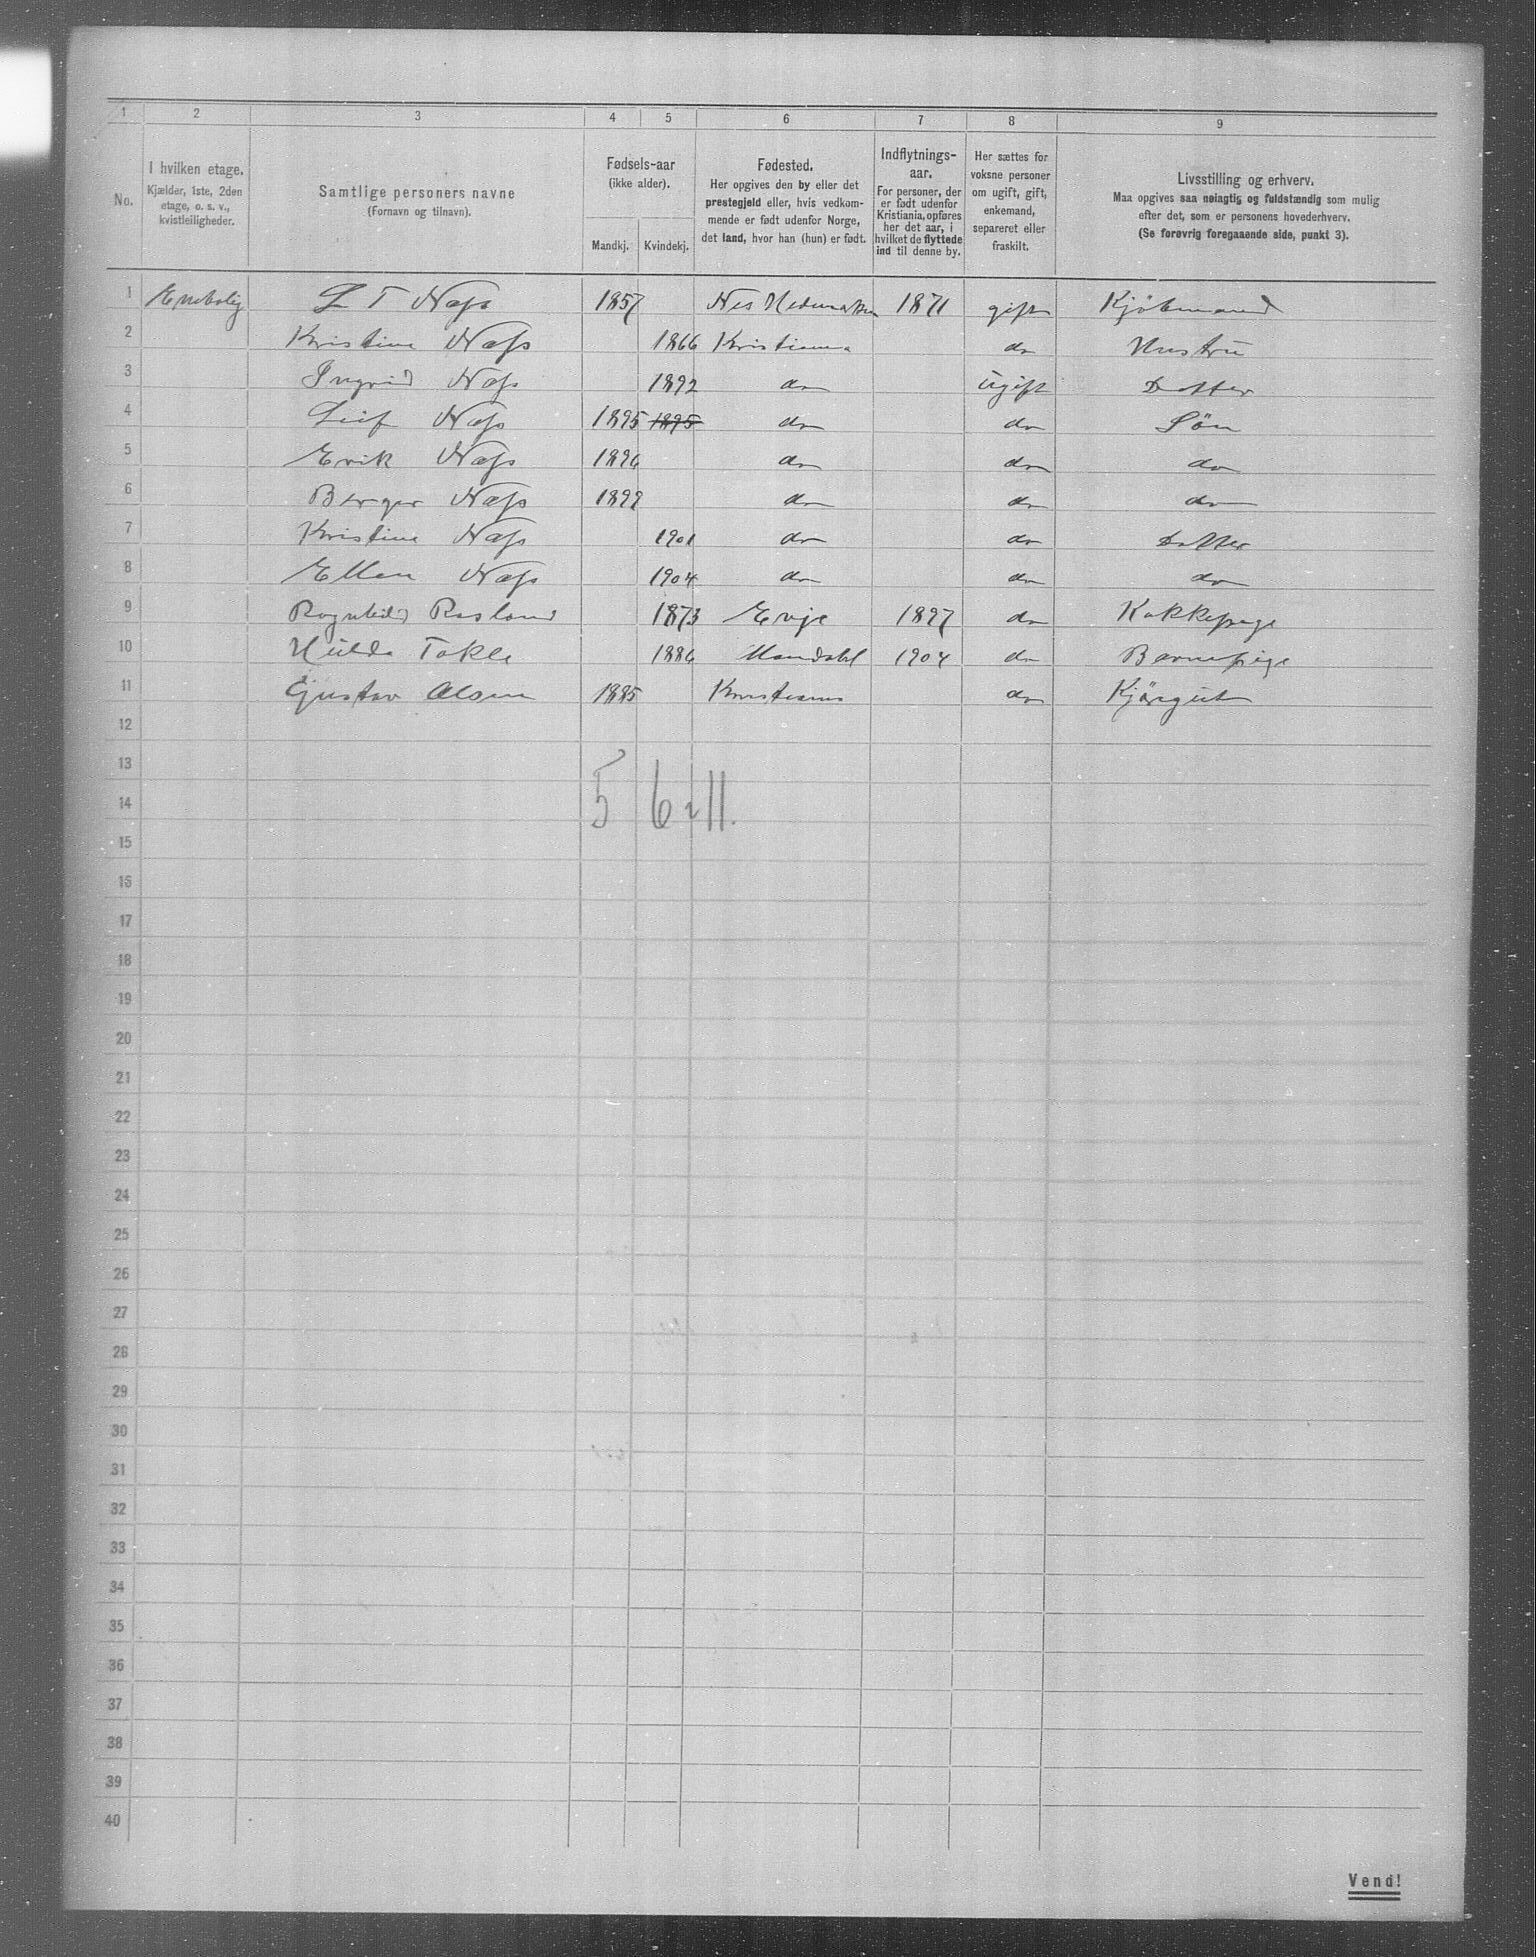 1 2 3 4 5 6 7 8 9
No.
I hvilken etage.
Kjælder, 1ste, 2den
etage, o. s. v.,
kvistleiligheder.
Samtlige personers navne
(Fornavn og tilnavn).
Fødsels-aar
(ikke alder).
Mandkj. Kvindekj.
Fødested.
Her opgives den by eller det
prestegjeld eller, hvis vedkom-
mende er født udenfor Norge,
det land, hvor han (hun) er født.
Indflytnings-
aar.
For personer, der
er født udenfor
Kristiania, opføres
her det aar, i
hvilket de flyttede
ind til denne by.
Her sættes for
voksne personer
om ugift, gift,
enkemand,
separeret eller
fraskilt.
Livsstilling og erhverv.
Maa opgives saa nøiagtig og fuldstændig som mulig
efter det, som er personens hovederhverv.
(Se forøvrig foregaaende side, punkt 3).
1 Enebolig L T Næss 1857 Nes Hedemarken 1871 gift Kjøbmand
2 Kristine Næss 1866 Kristiania do Hustru
3 Ingrid Næss 1892 do ugift Datter
4 Leif Næss 1895 1895 do do Søn
5 Erik Næss 1896 do do do
6 Birger Næss 1899 do do do
7 Kristine Næss 1901 do do Datter
8 Ellen Næss 1904 do do do
9 Ragnhild Rosland 1873 Evje 1897 do Kokkepige
10 Hulda Takle 1886 Mandahl 1904 do Barnepige
11 Gustav Olsen 1885 Kristiania do Kjøregut
12
13
14 5 6 11.
15
16
17
18
19
20
21
22
23
24
25
26
27
28
29
30
31
32
33
34
35
36
37
38
39
40
Vend!